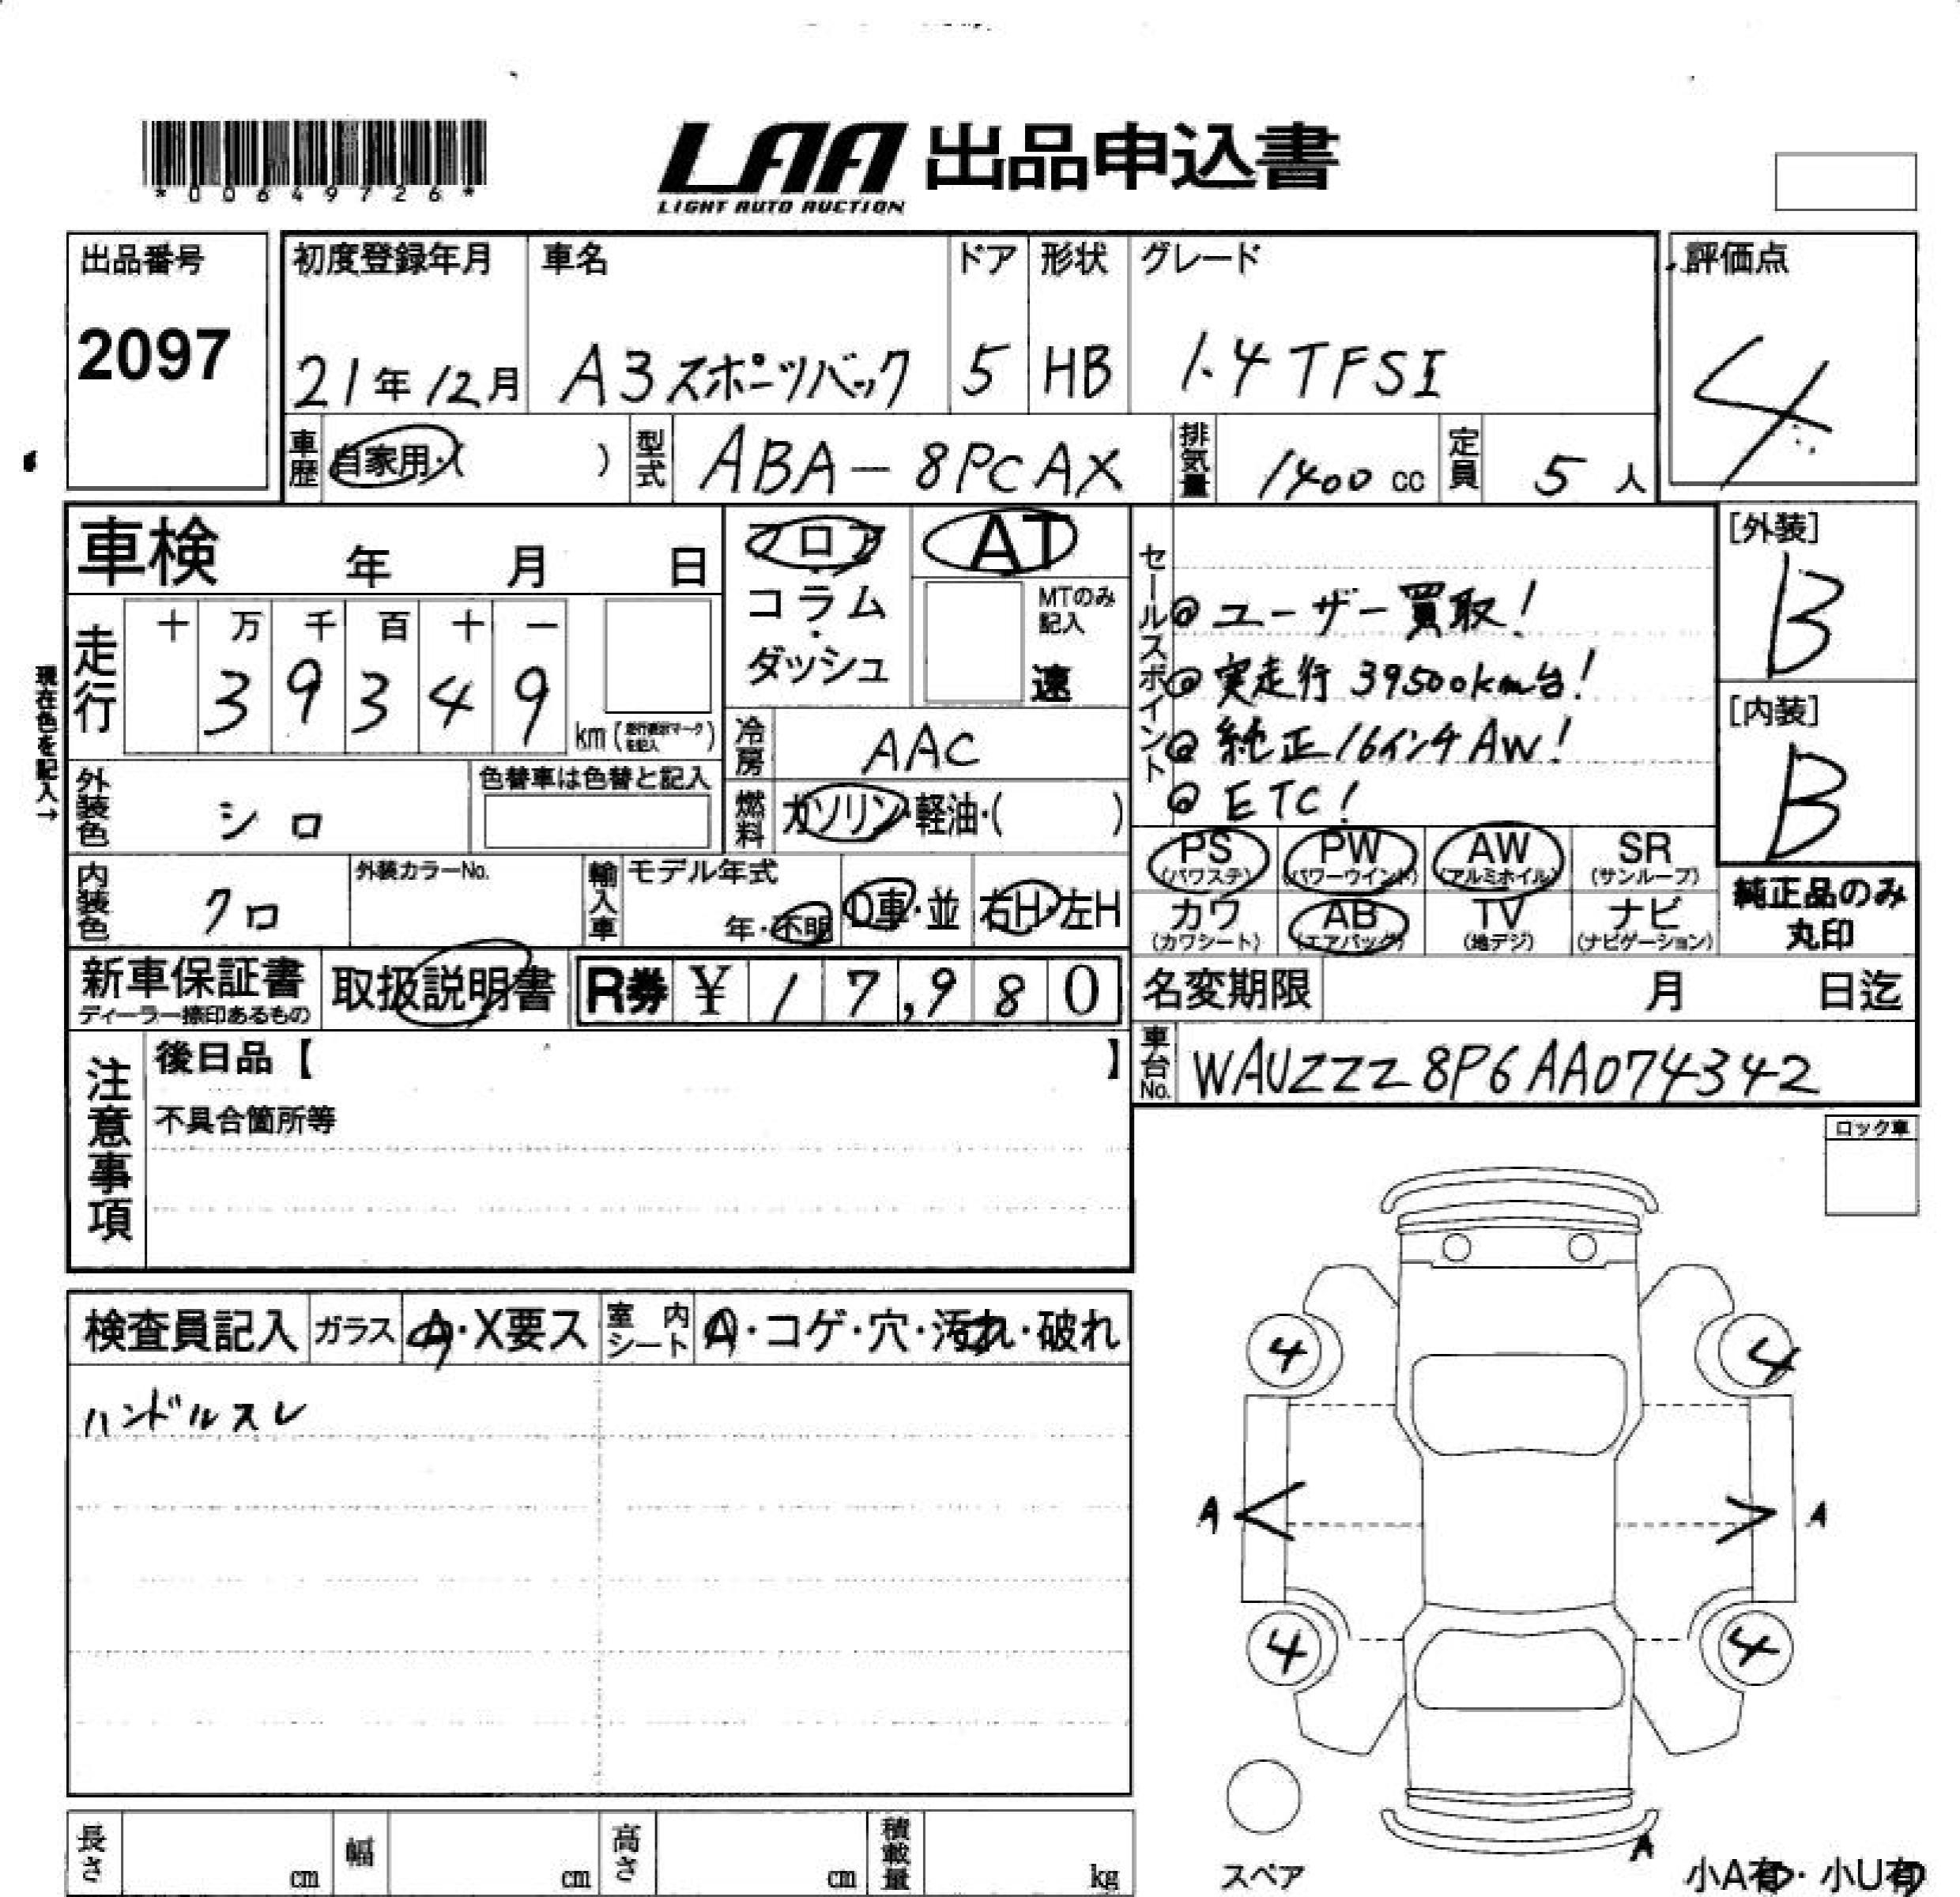 *00649726*
LAA 出品申込書
LIGHT AUTO AUCTION
出品番号
2097
初度登録年月
21年12月
車名
A3スポーツバック
ドア
5
形状
HB
グレード
1.4TFSI
評価点
4
車歴 自家用・( )
型式 ABA-8PCAX
排気量 1400 cc
定員 5 人
車検 年 月 日
フロア・コラム・ダッシュ
AT
MTのみ記入
速
走行 十 万 千 百 十 一
39349
km
現在色を記入→
冷房 AAC
燃料 ガソリン・軽油・( )
外装色 シロ
色替車は色替と記入
内装色 クロ
外装カラーNo.
輸入車 モデル年式
年・不明
D車・並
右H・左H
セールスポイント
◎ユーザー買取!
◎実走行39500km台!
◎純正16インチAW!
◎ETC!
[外装]
B
[内装]
B
PS (パワステ) PW (パワーウインド) AW (アルミホイル) SR (サンルーフ)
カワ (カワシート) AB (エアバッグ) TV (地デジ) ナビ (ナビゲーション)
純正品のみ丸印
新車保証書
ディーラー捺印あるもの
取扱説明書
R券 ¥17,980
名変期限 月 日迄
車台No. WAUZZZ8P6AA074342
注意事項
後日品【 】
不具合箇所等
ロック車
検査員記入 ガラス A・X要ス 室内シート A・コゲ・穴・汚れ・破れ
ハンドルスレ
4 4
A A
4 4
A
スペア
小A有・小U有
長さ cm 幅 cm 高さ cm 積載量 kg